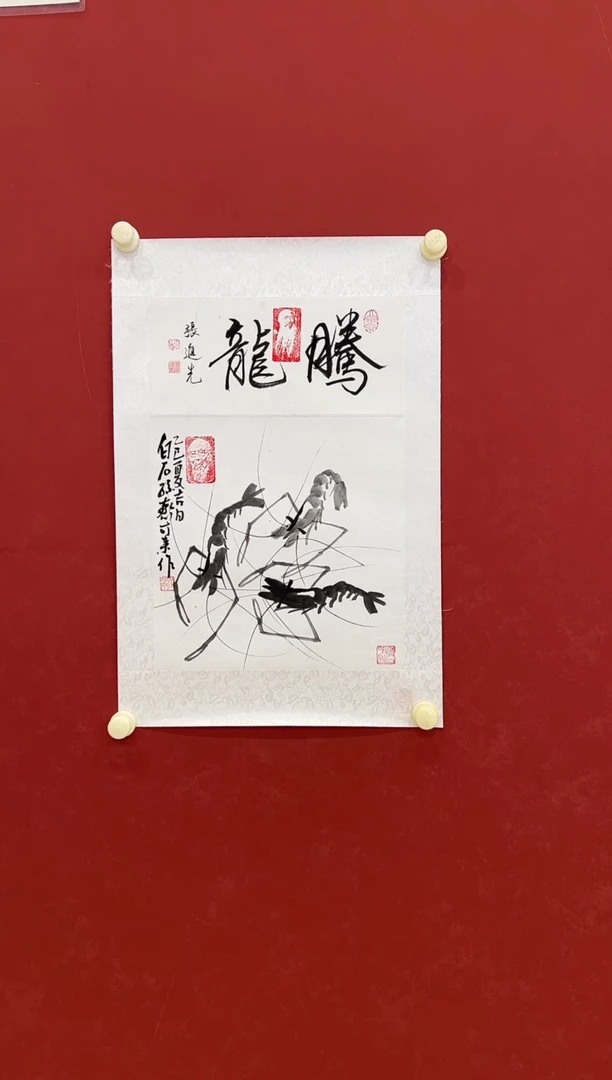 騰龍
張進光
乙巳夏吉日
白石孫
作